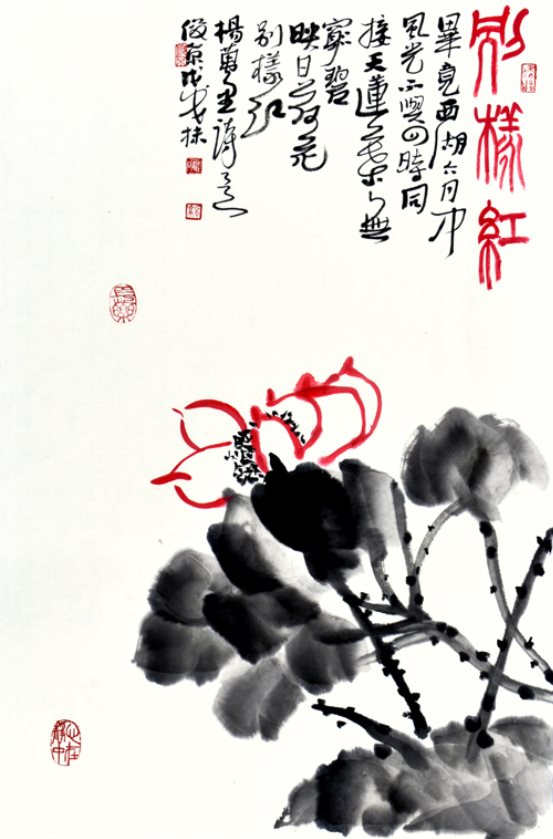 別樣紅
畢竟西湖六月中
風光不與四時同
接天蓮葉無
窮碧
映日荷花
別樣紅
楊萬里詩意
心在靜中